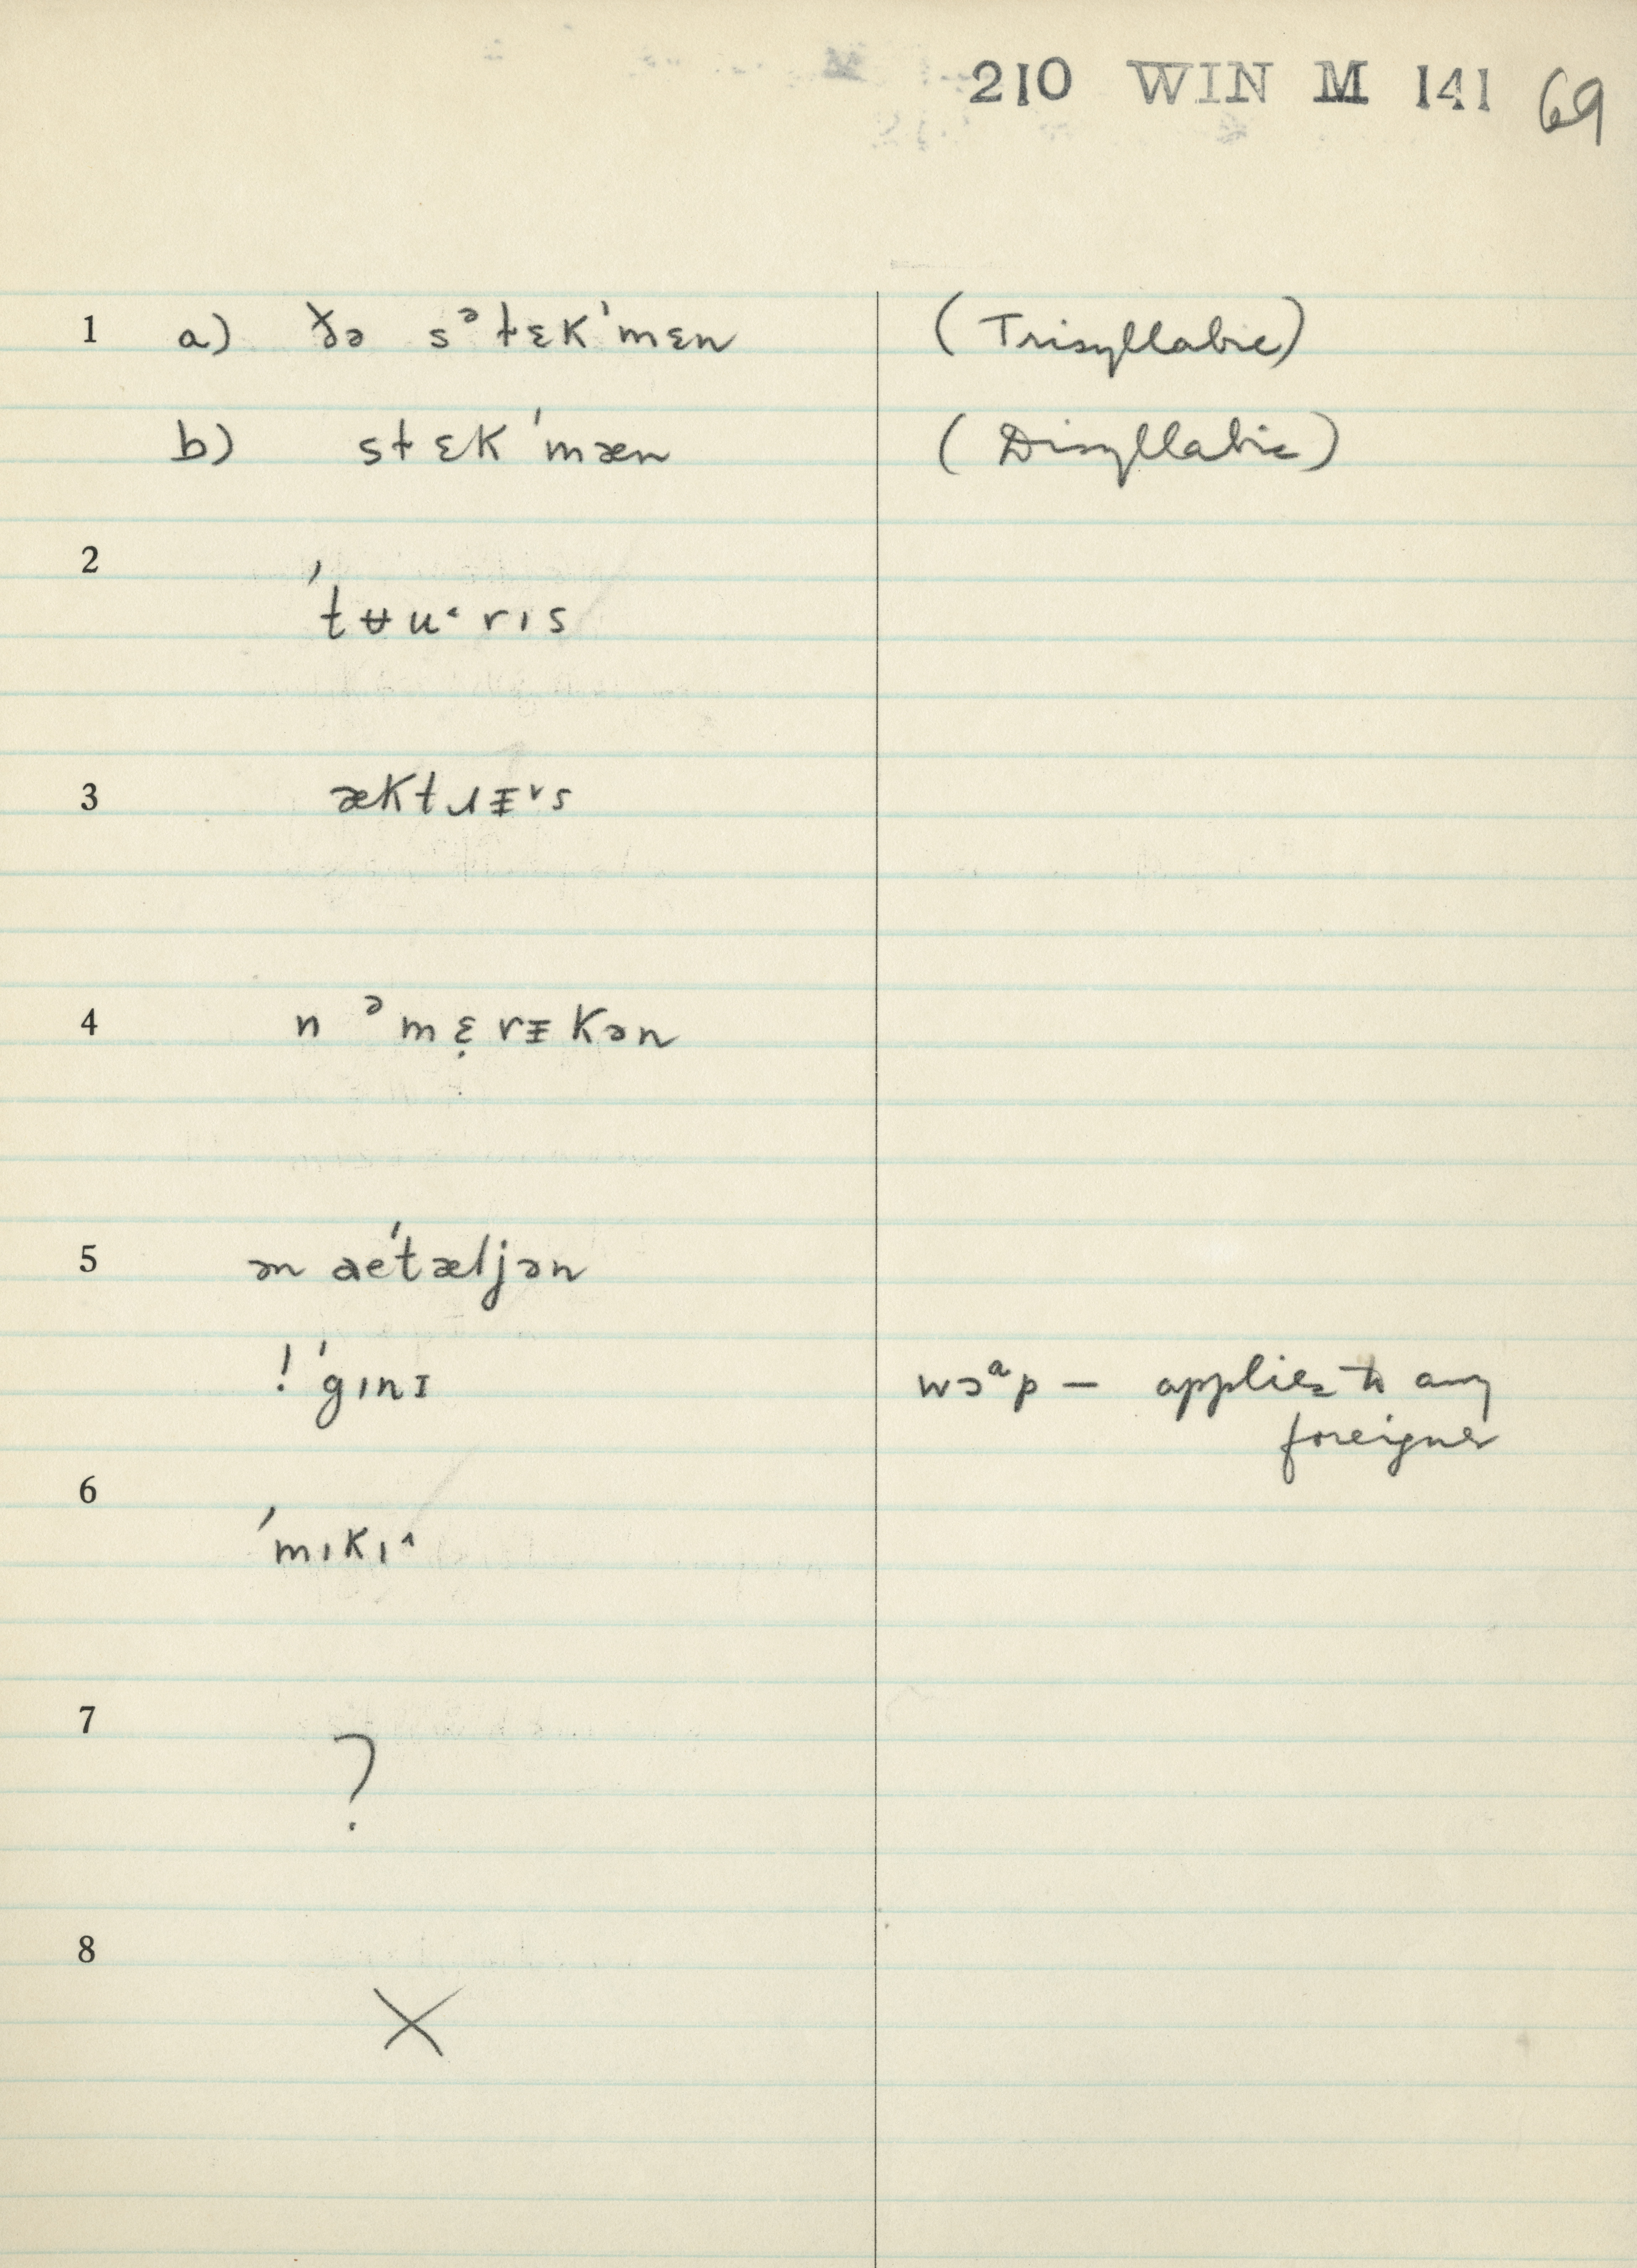 210 WIN M 141 69
1 a) ðə sᵊtɛk'mɛn (Trisyllabic)
b) stɛk'mæn (Disyllabic)
2
'tʉuˑrɪs
3 æktɹᵻʳs
4 n ᵊmɛ̣rᵻkən
5 ən ae'tæljən
! 'gɪnɪ wɔᵃp — applies to any
foreigner
6
'mɪkɪ^
7
?
8
X